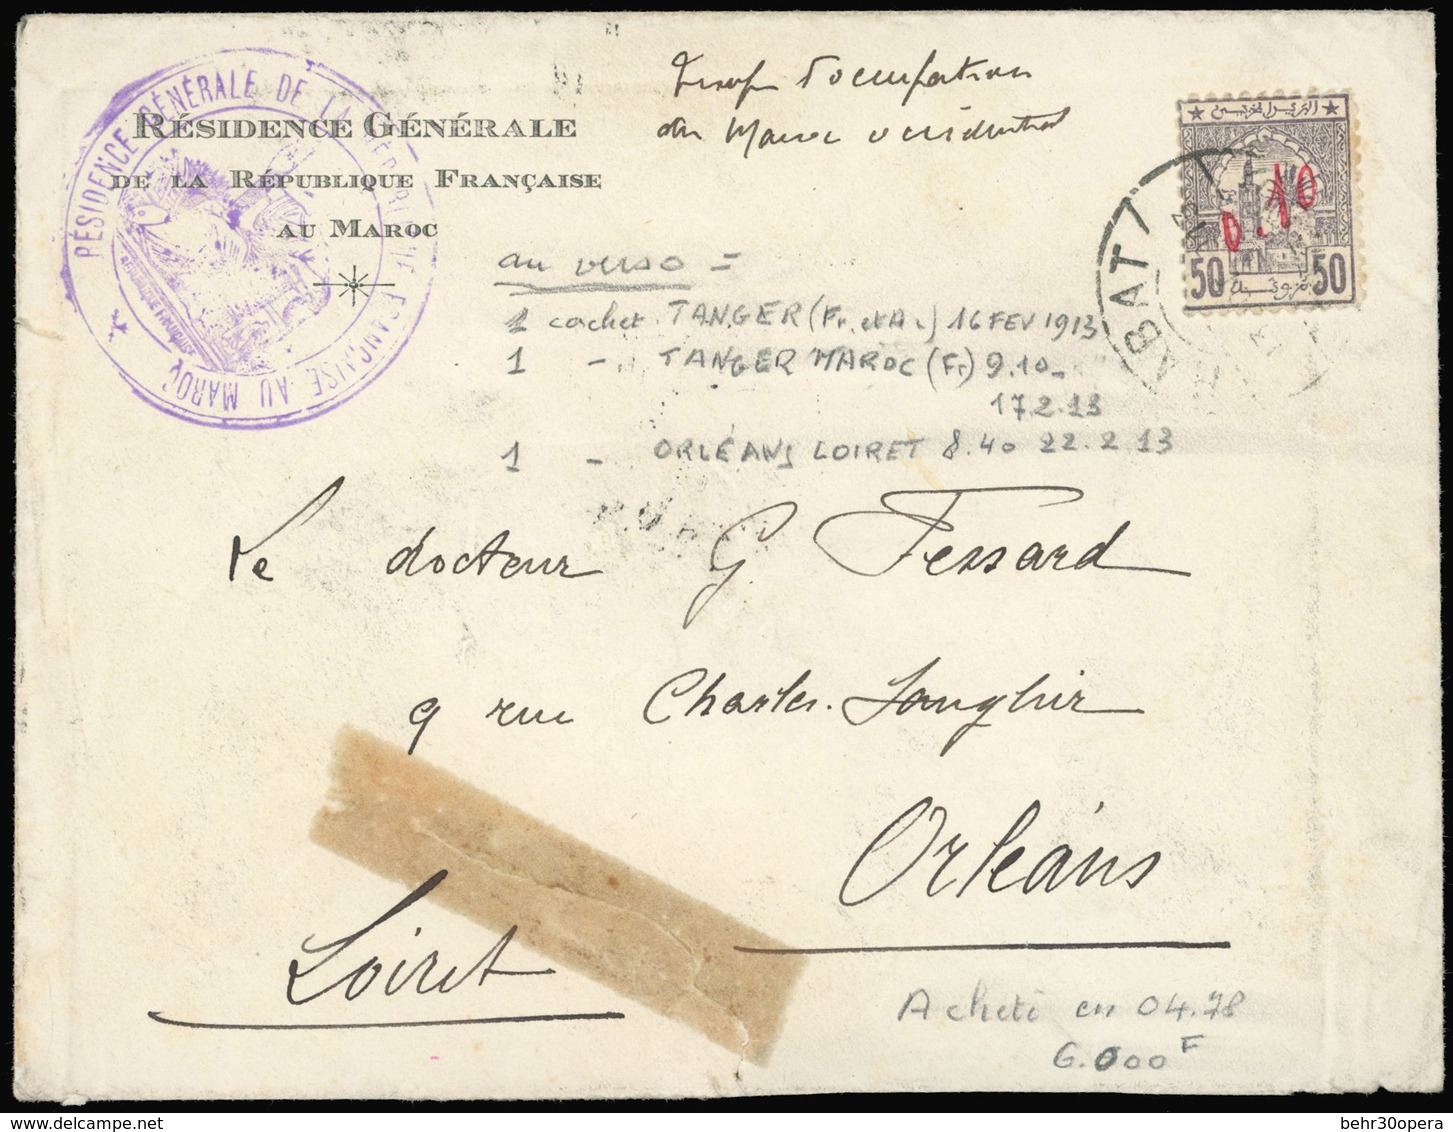 RÉSIDENCE GÉNÉRALE DE LA RÉPUBLIQUE FRANÇAISE AU MAROC
RÉSIDENCE GÉNÉRALE
DE LA RÉPUBLIQUE FRANÇAISE
AU MAROC
Troupes d'occupation
du Maroc occidental
50 50
0.10
RABAT
au verso =
1 cachet TANGER (Fr. et A.) 16 FEV 1913
1 - TANGER MAROC (Fr) 9.10 -
17.2.13
1 - ORLÉANS LOIRET 8.40 22.2.13
Le docteur G Fessard
9 rue Charles.
Orléans
Loiret
Acheté en 04.78
6.000 F
delcampe.net
behr30opera